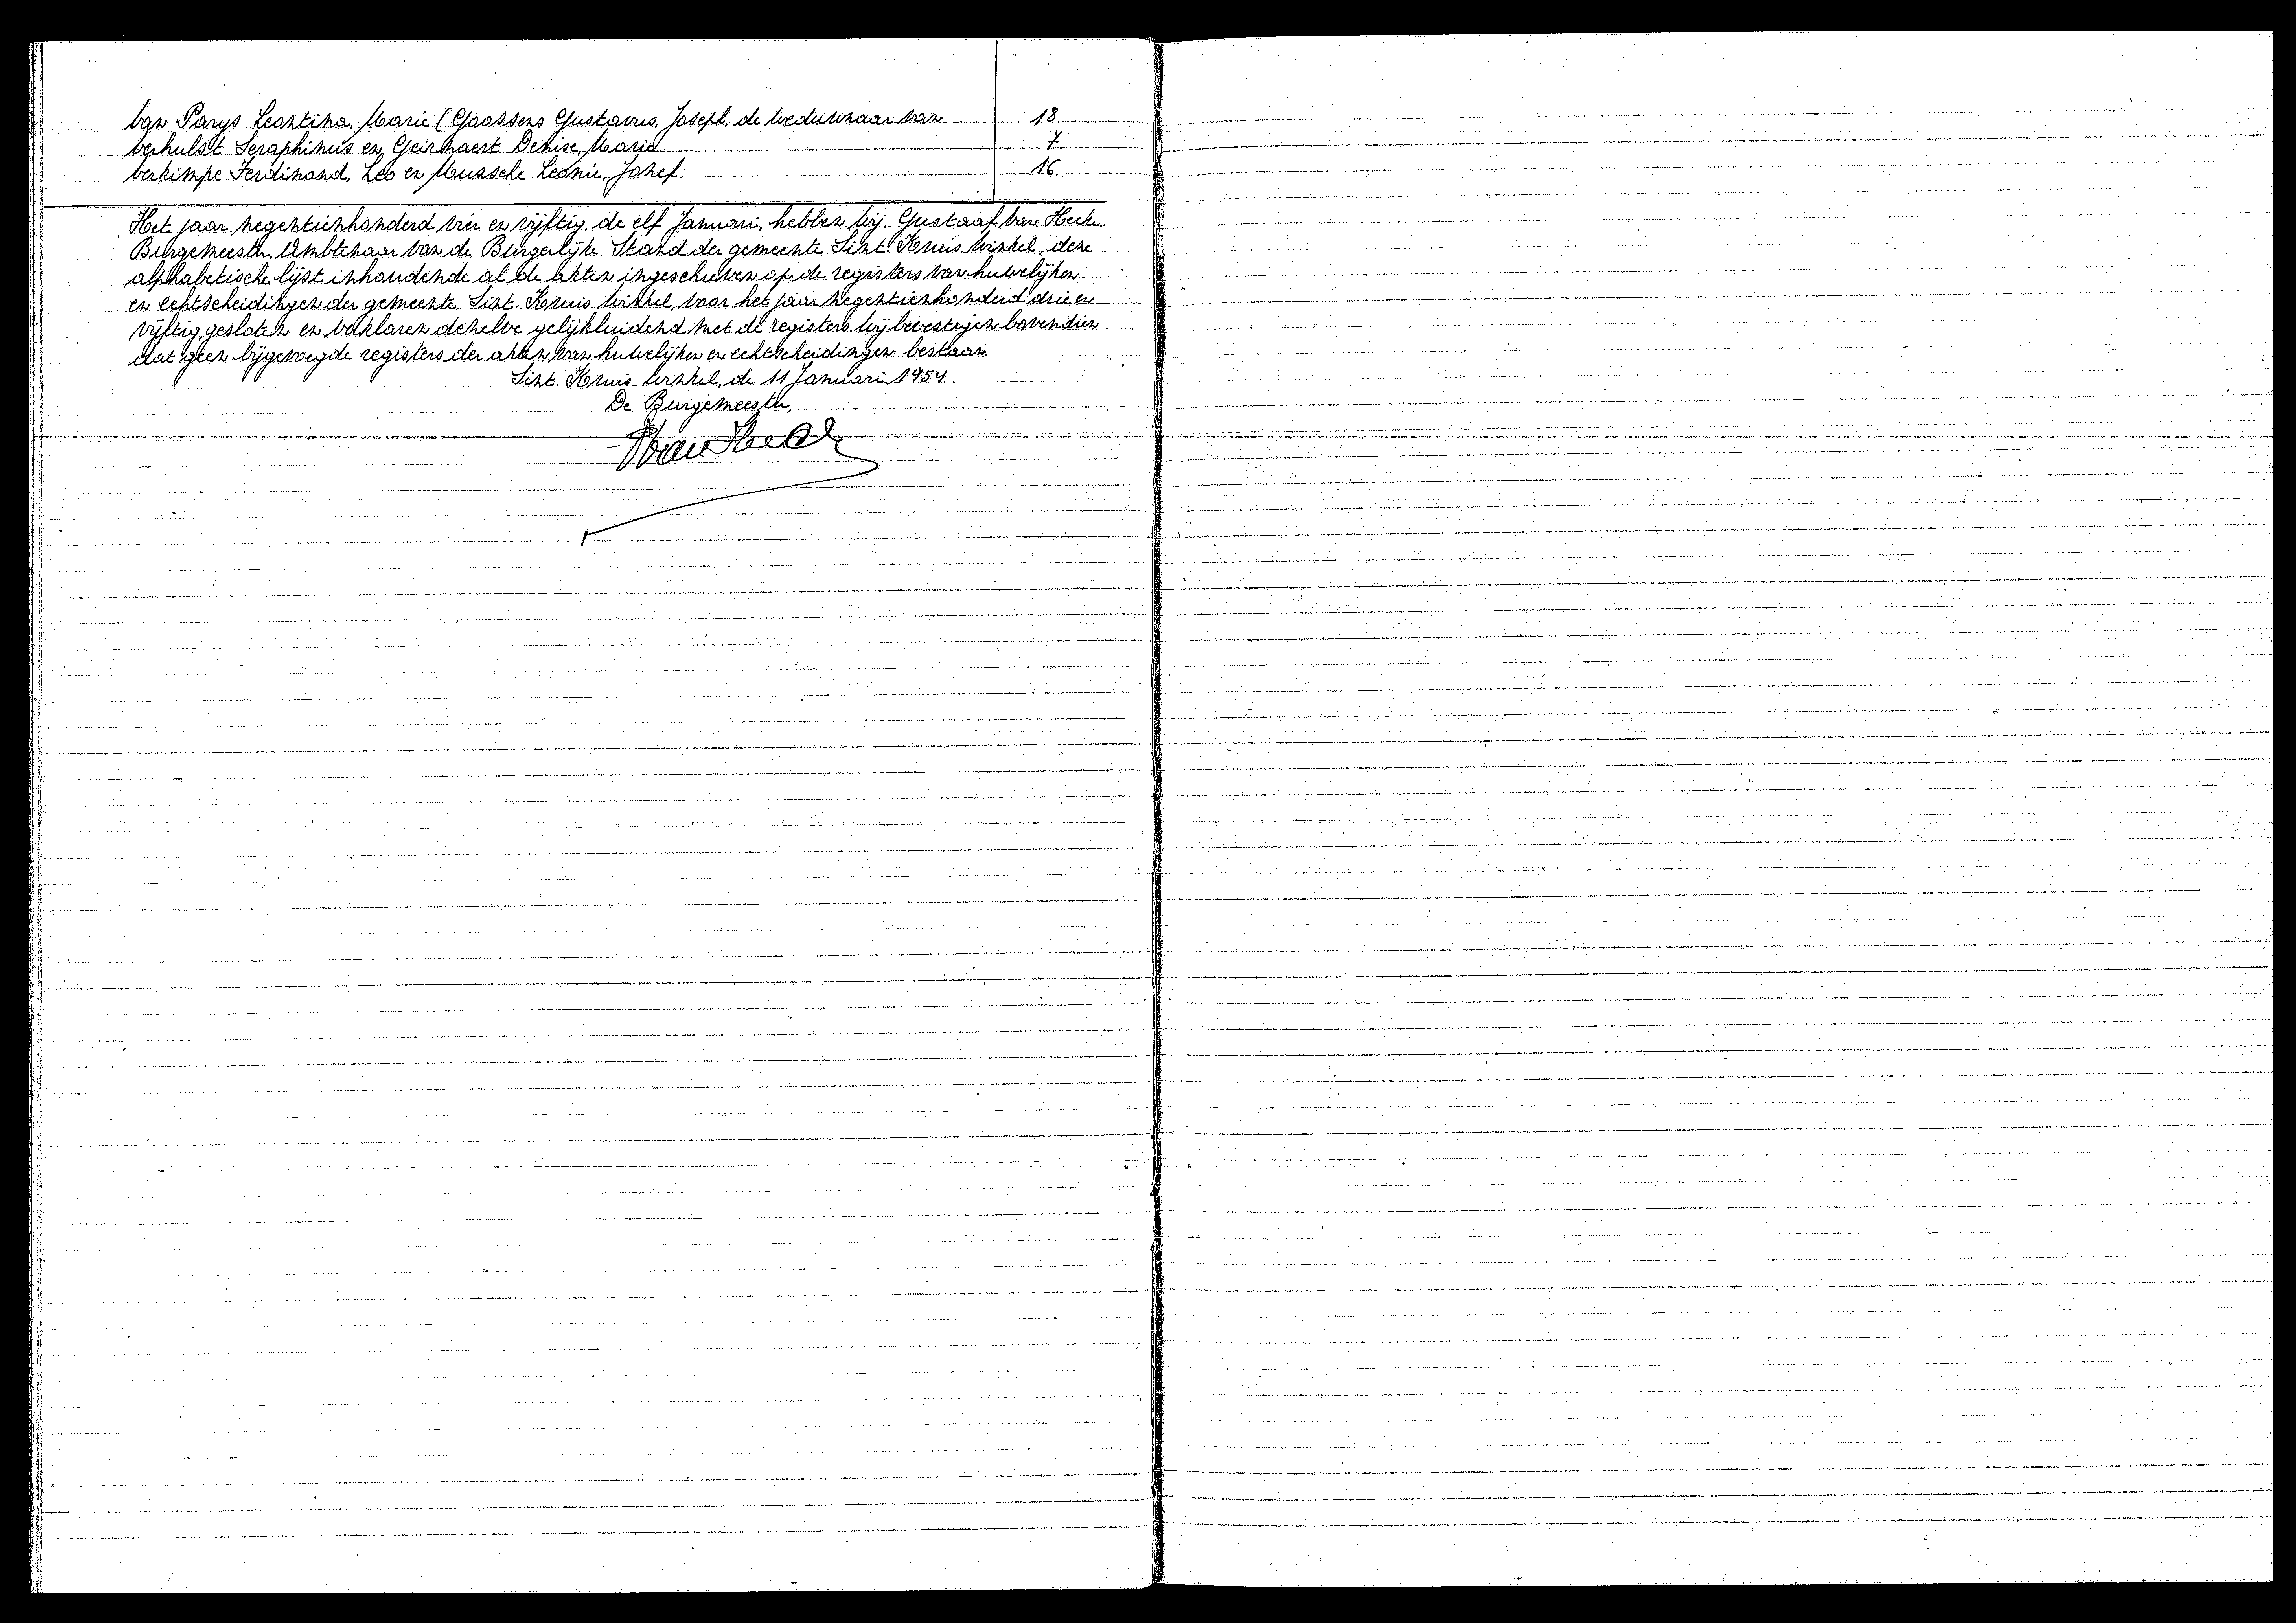 Van Parys Leontina, Marie (Goossens Gustavus, Joseph, de weduwnaar van 18
Verhulst Seraphinus en Geirnaert Denise, Maria 7
Verkimpe Ferdinand, Leo en Mussche Leonie, Jozef. 16.
Het jaar negentienhonderd vier en vijftig, de elf Januari, hebben wij, Gustaaf Van Hecke
Burgemeester, Ambtenaar van de Burgerlijke Stand der gemeente Sint. Kruis. Winkel, deze
alphabetische lijst inhoudende al de akten ingeschreven op de registers van huwelijken
en echtscheidingen der gemeente Sint. Kruis. Winkel, voor het jaar negentienhonderd drie en
vijftig, gesloten en verklaren dezelve gelijkluidend met de registers. Wij bevestigen bovendien
dat geen bijgevoegde registers der akten van huwelijken en echtscheidingen bestaan.
Sint. Kruis-Winkel, de 11 Januari 1954
De Burgemeester,